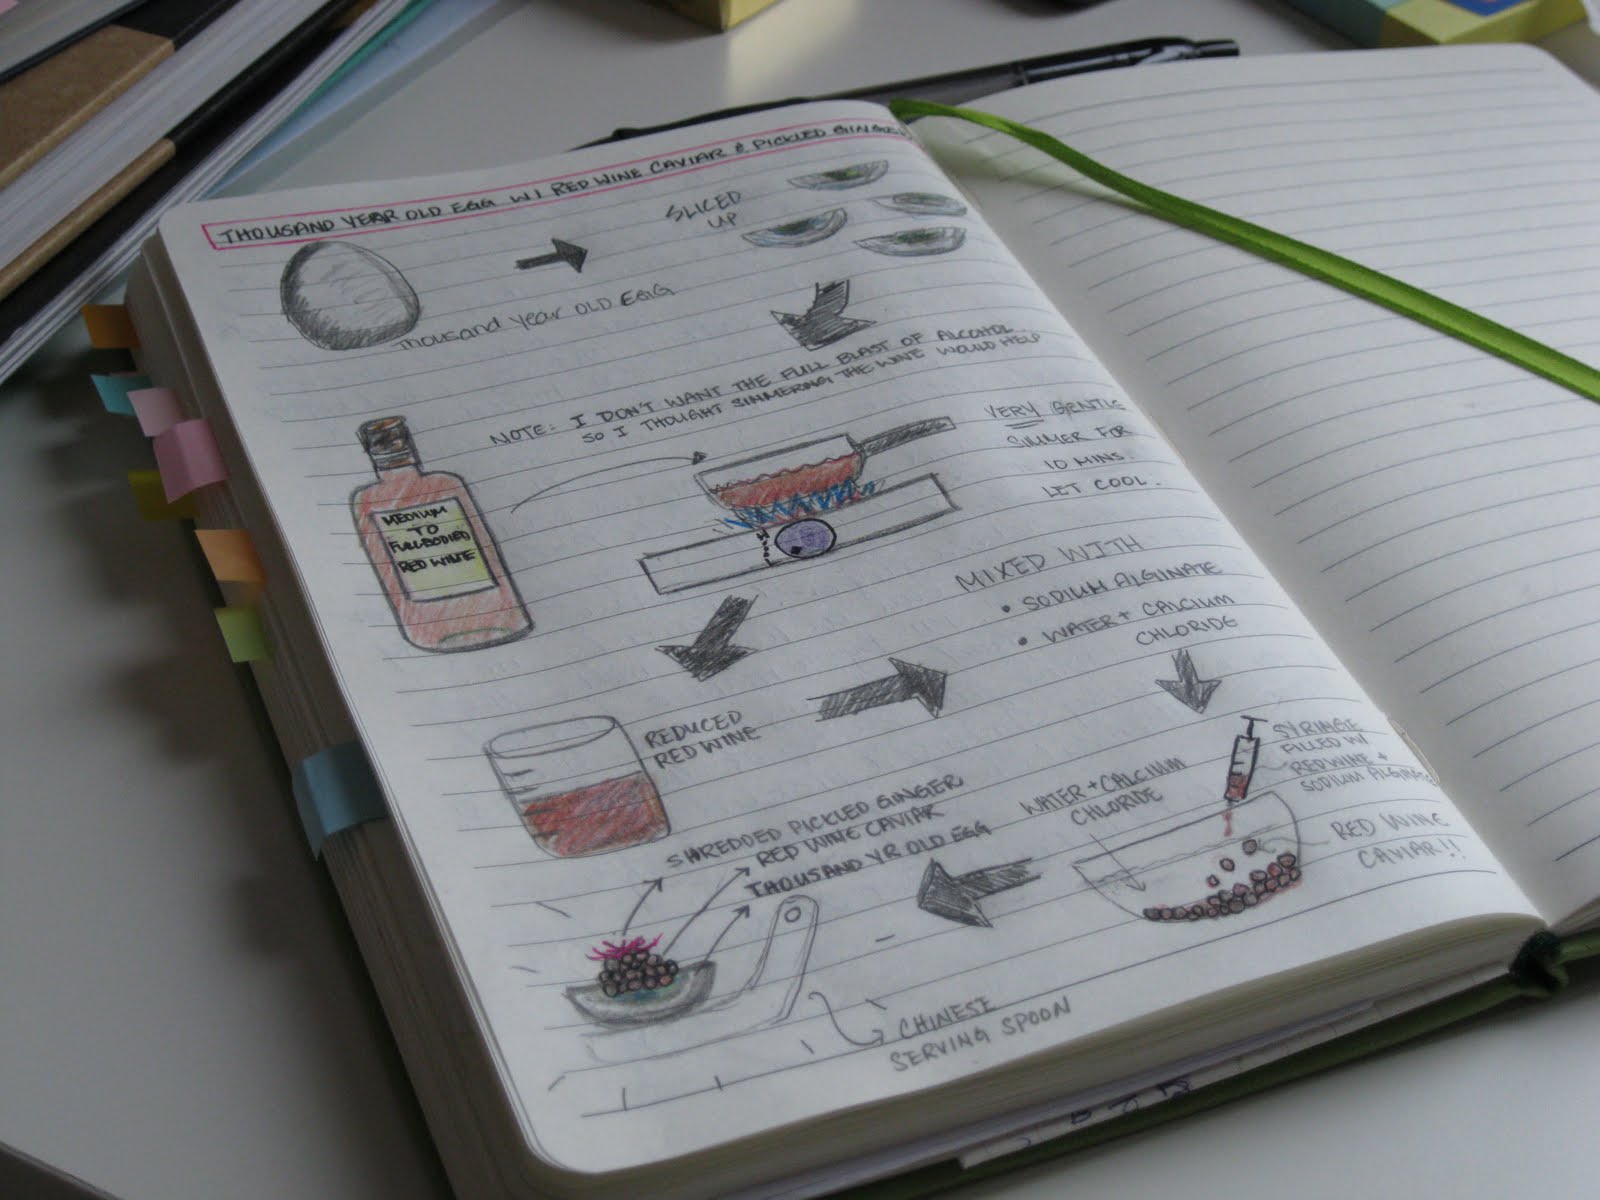 THOUSAND YEAR OLD EGG W/ RED WINE CAVIAR & PICKLED GINGER
SLICED
UP
Thousand Year OLD EGG
NOTE: I DON'T WANT THE FULL BLAST OF ALCOHOL
SO I THOUGHT SIMMERING THE WINE WOULD HELP
VERY GENTLE
SIMMER FOR
10 MINS.
LET COOL.
MEDIUM
TO
FULLBODIED
RED WINE
MIXED WITH
• SODIUM ALGINATE
• WATER + CALCIUM
CHLORIDE
REDUCED
RED WINE
SYRINGE
FILLED W/
RED WINE +
SODIUM ALGINATE
WATER + CALCIUM
CHLORIDE
RED WINE
CAVIAR!!
SHREDDED PICKLED GINGER
RED WINE CAVIAR
THOUSAND YR OLD EGG
CHINESE
SERVING SPOON